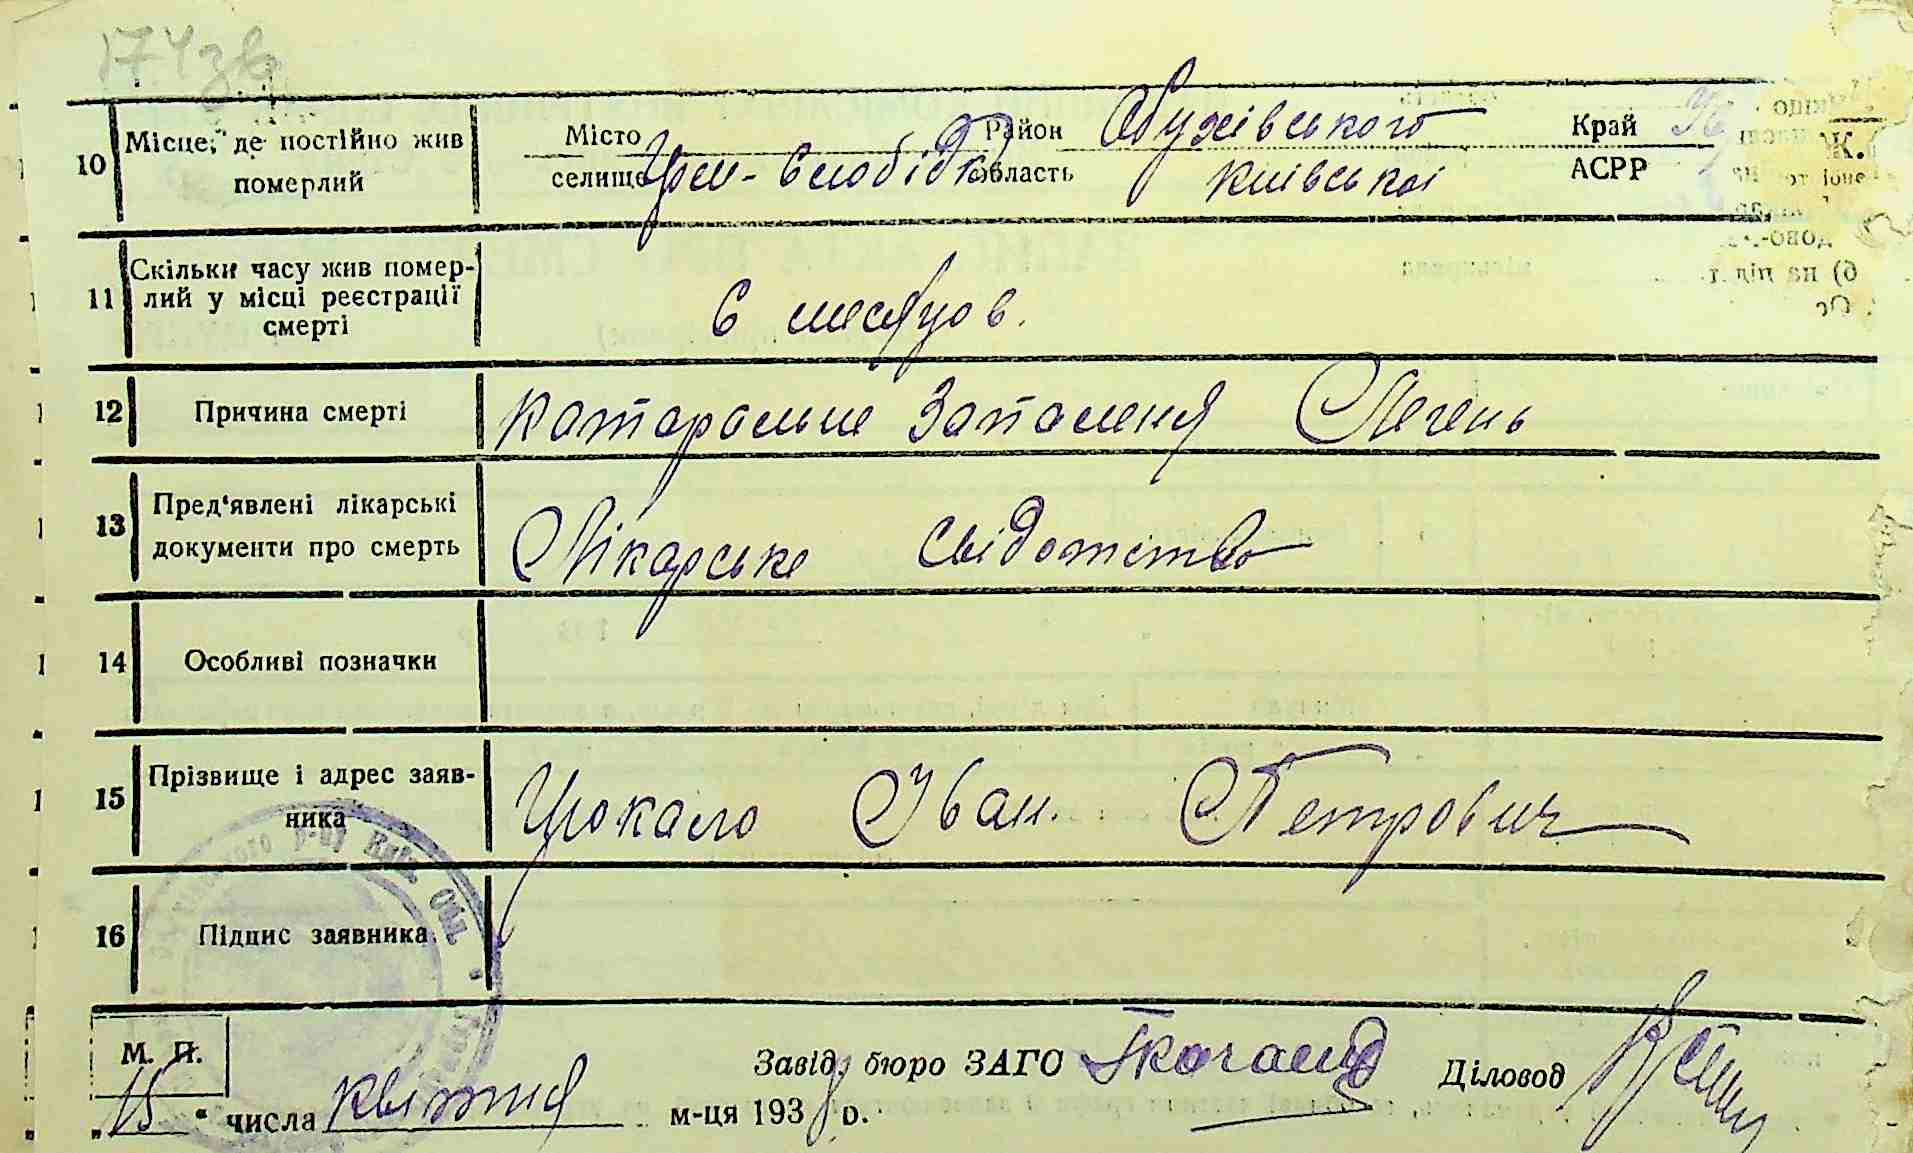 174зв
10 Місце, де постійно жив Місто Район Обухівського Край
померлий селище Слобідка Область київської АСРР
Скільки часу жив помер-
11 лий у місці реєстрації 6 месяцов.
смерті
12 Причина смерті катаральне запаленя Легень
13 Пред'явлені лікарські
документи про смерть Лікарське свідотство
14 Особливі позначки
15 Прізвище і адрес заяв-
ника Цюкало Іван Петрович
16 Підпис заявника
М. П. Завід. бюро ЗАГС Діловод
15 " числа квітня м-ця 193 р.